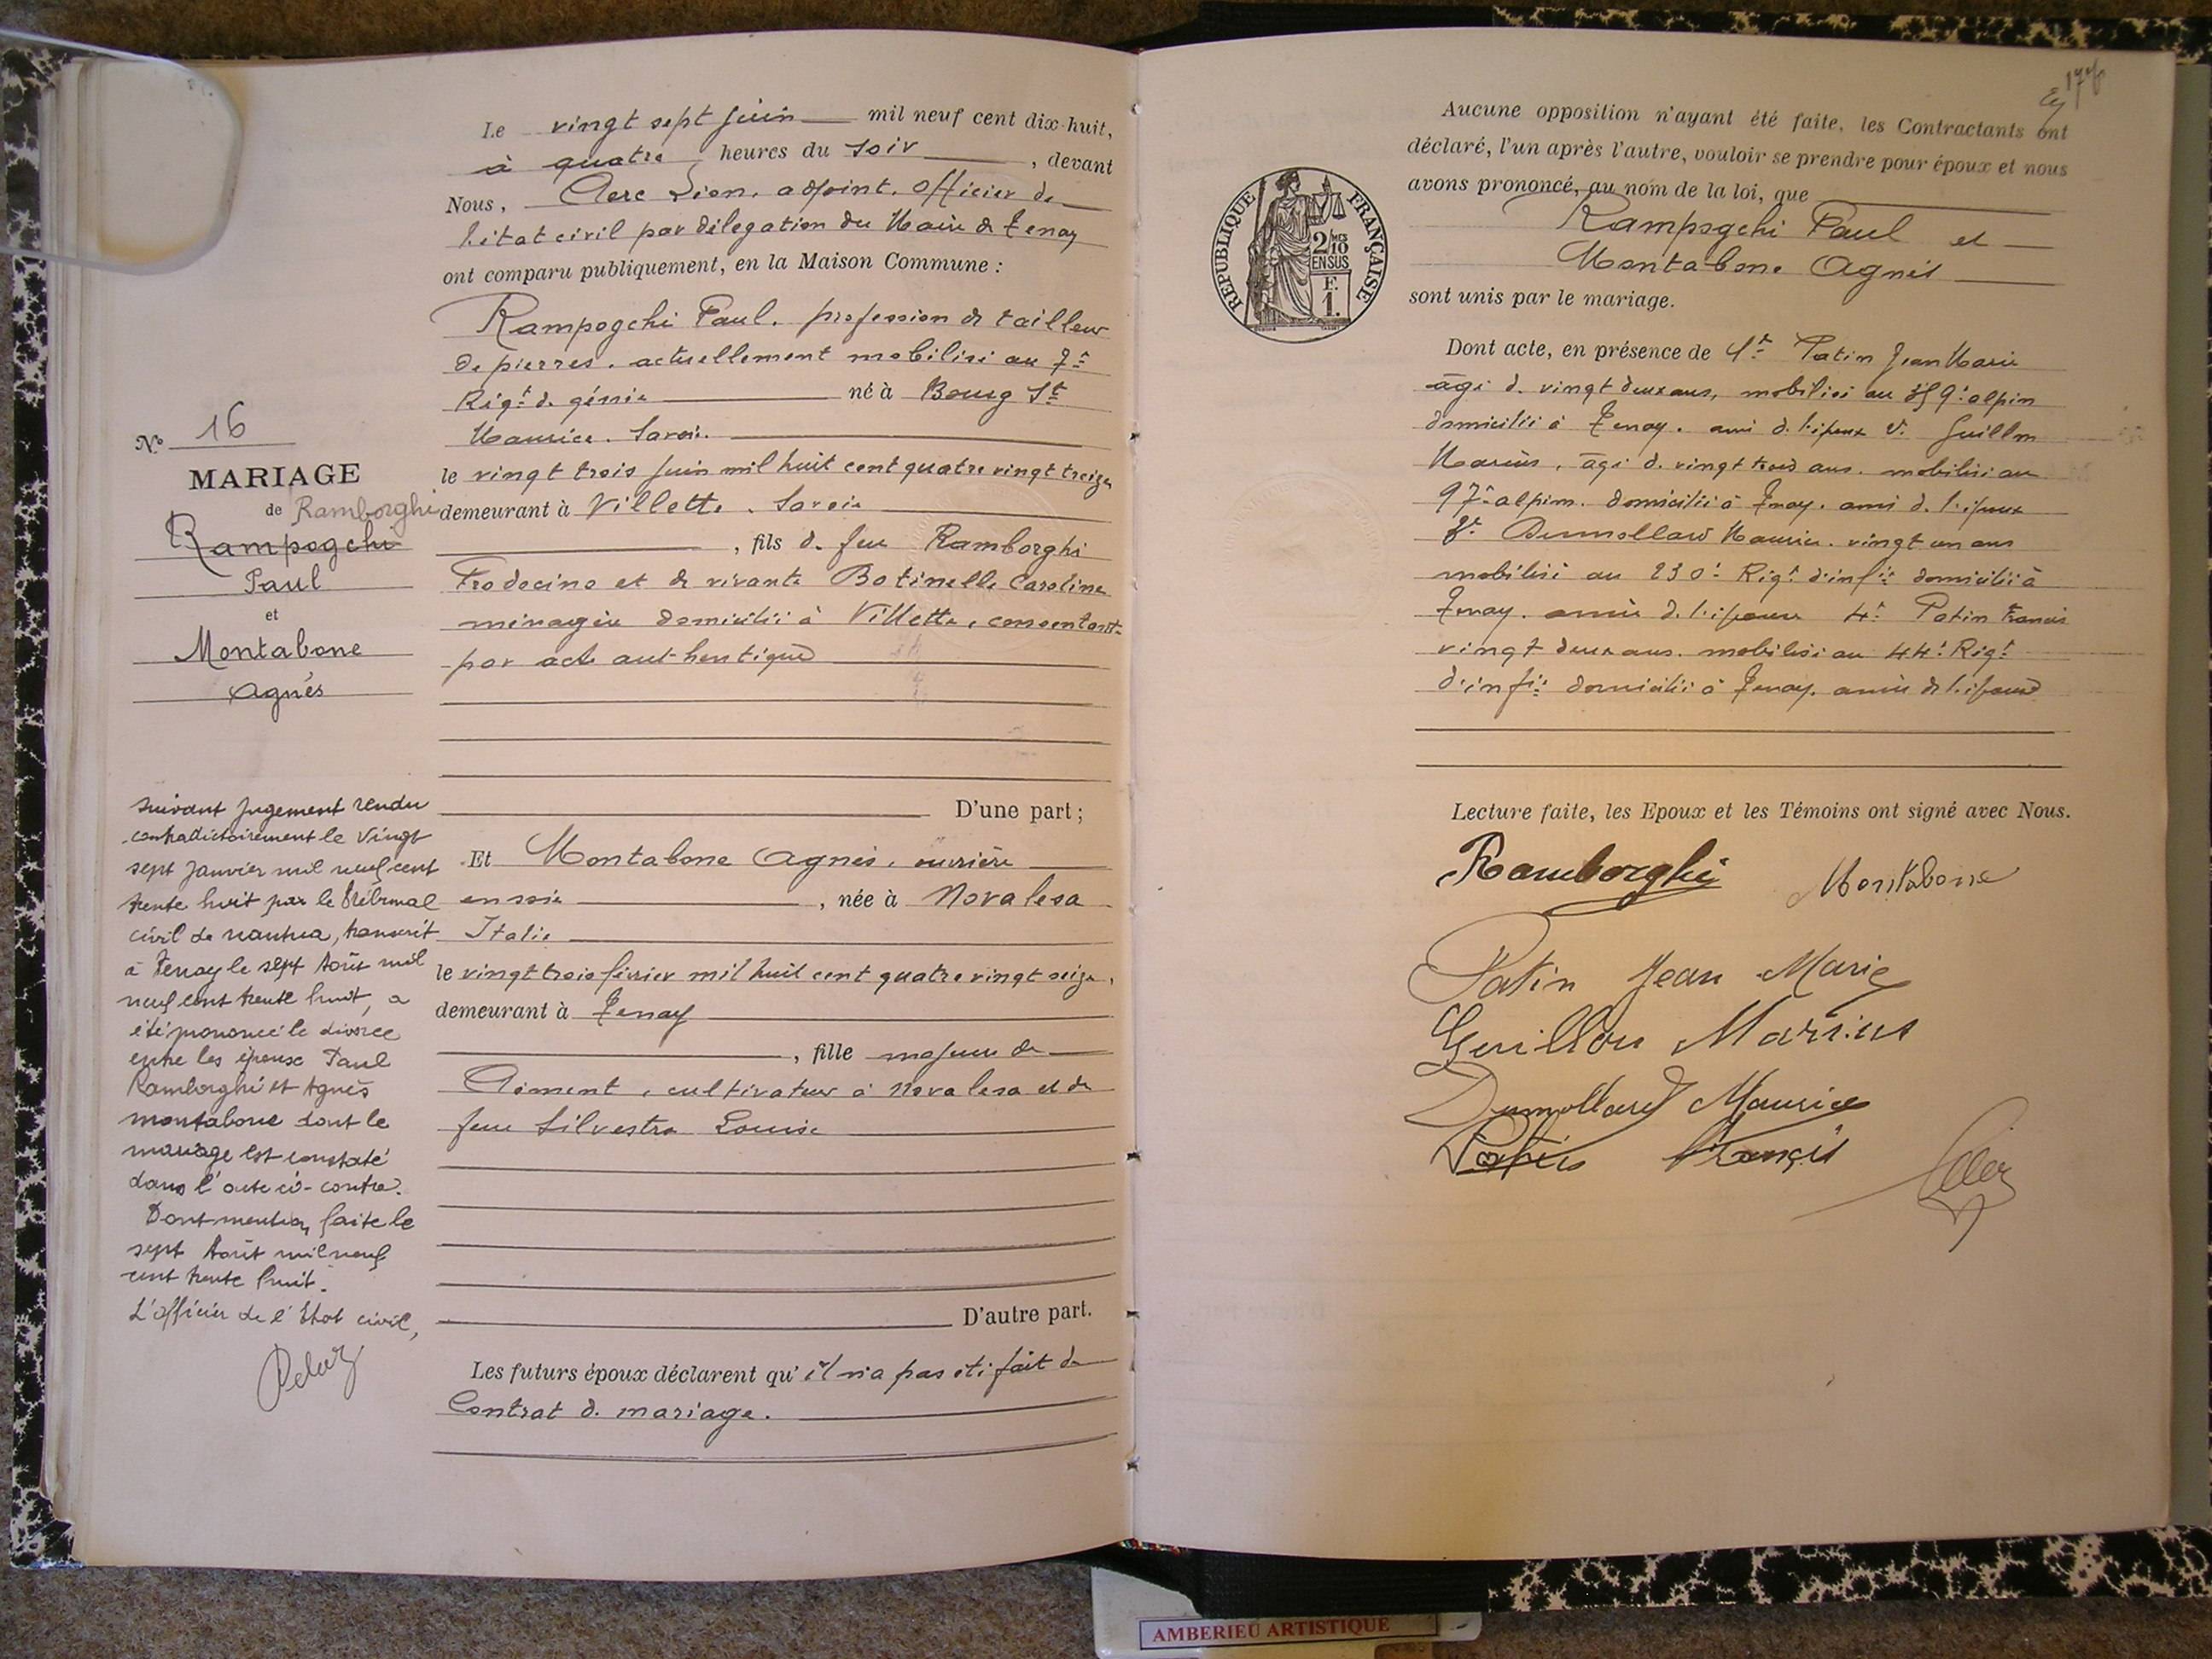 Le vingt sept juin mil neuf cent dix-huit,
à quatre heures du soir, devant
Nous, Clerc Léon, adjoint, officier de
l'état civil par délégation du Maire de Tenay
ont comparu publiquement, en la Maison Commune :
Rampogchi Paul, profession de tailleur
de pierres, actuellement mobilisé au 7e
Régt de génie né à Bourg St
Maurice. Savoie.
le vingt trois juin mil huit cent quatre vingt treize
demeurant à Villette. Savoie
, fils de feu Ramborghi
et de vivante Botinelle Caroline
ménagère domiciliée à Villette, consentante
par acte authentique
D'une part ;
Et Montabone Agnès, ouvrière
en soie, née à Novalesa
Italie
le vingt trois février mil huit cent quatre vingt seize,
demeurant à Tenay
, fille majeure de
Clément, cultivateur à Novalesa et de
feue Silvestro Louise
D'autre part.
Les futurs époux déclarent qu'il n'a pas été fait de
Contrat de mariage.
No 16
MARIAGE
de Ramborghi
Rampogchi
Paul
et
Montabone
Agnès
Suivant jugement rendu
contradictoirement le vingt
sept Janvier mil neuf cent
trente huit par le Tribunal
civil de Nantua, transcrit
à Tenay le sept Août mil
neuf cent trente huit, a
été prononcé le divorce
entre les époux Paul
Ramborghi et Agnès
Montabone dont le
mariage est constaté
dans l'acte ci-contre.
Dont mention faite le
sept Août mil neuf
cent trente huit.
L'officier de l'Etat civil,
176
Aucune opposition n'ayant été faite, les Contractants ont
déclaré, l'un après l'autre, vouloir se prendre pour époux et nous
avons prononcé, au nom de la loi, que
Rampogchi Paul et
Montabone Agnès
sont unis par le mariage.
RÉPUBLIQUE FRANÇAISE
2/10 MES
EN SUS
F.
1.
Dont acte, en présence de 1t Patin Jean Marie
âgé de vingt deux ans, mobilisé au 359e alpin
domicilié à Tenay. ami de l'époux 2t Guillon
Marius, âgé de vingt trois ans. mobilisé au
97e alpin. domicilié à Tenay. ami de l'époux
3t Dumollard Maurice. vingt un ans
mobilisé au 230e Régt d'infie domicilié à
Tenay. ami de l'épouse 4t Patin Francis
vingt deux ans. mobilisé au 44e Régt
d'infie domicilié à Tenay. ami de l'épouse
Lecture faite, les Epoux et les Témoins ont signé avec Nous.
Ramborghi Montabone
Patin Jean Marie
Guillon Marius
Dumollard Maurice
Patin Francis
AMBERIEU ARTISTIQUE